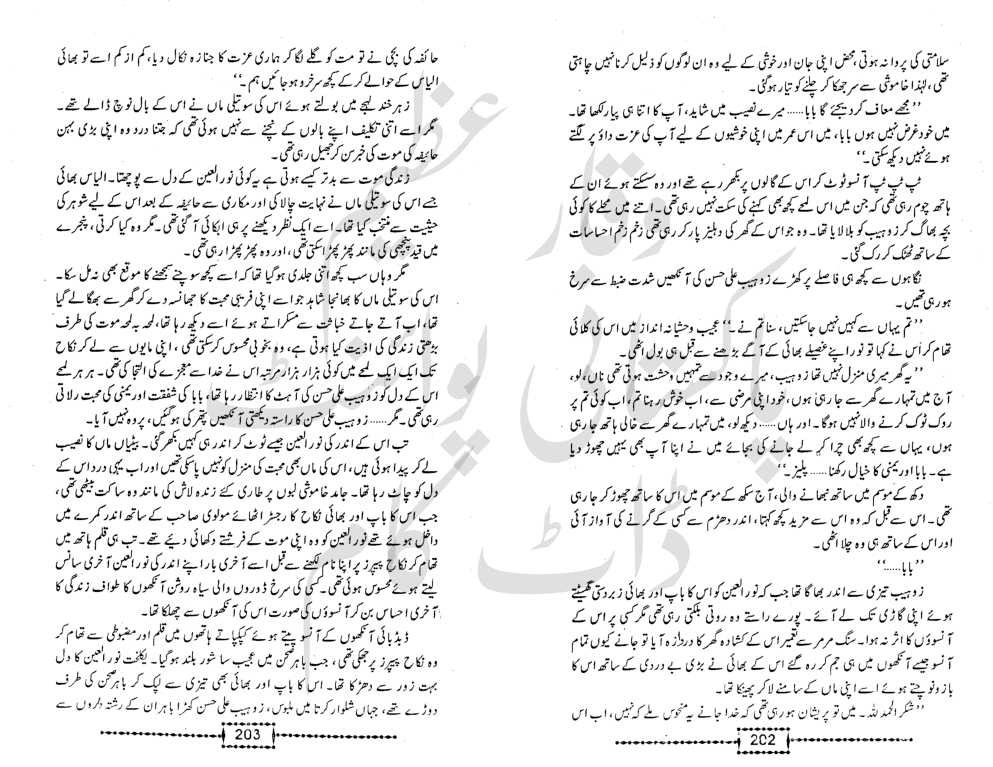 سلامتی کی پروا نہ ہوتی، محض اپنی جان اور خوشی کے لیے وہ ان لوگوں کو ذلیل کرنا نہیں چاہتی
تھی، لہٰذا خاموشی سے سر جھکا کر چلنے کو تیار ہو گئی۔
’’مجھے معاف کر دیجئے گا بابا...... میرے نصیب میں شاید، آپ کا اتنا ہی پیار لکھا تھا۔
میں خود غرض نہیں ہوں بابا، میں اس عمر میں اپنی خوشیوں کے لیے آپ کی عزت داؤ پر لگتے
ہوئے نہیں دیکھ سکتی۔‘‘
ٹپ ٹپ ٹپ آنسو ٹوٹ کر اس کے گالوں پر بکھر رہے تھے اور وہ سسکتے ہوئے ان کے
ہاتھ چوم رہی تھی کہ جن میں اس لمحے کچھ بھی کہنے کی سکت نہیں رہی تھی۔ اتنے میں محلے کا کوئی
بچہ بھاگ کر زوہیب کو بلا لایا تھا۔ وہ جو اس کے گھر کی دہلیز پار کر رہی تھی زخم زخم احساسات
کے ساتھ ٹھٹک کر رک گئی۔
نگاہوں سے کچھ ہی فاصلے پر کھڑے زوہیب علی حسن کی آنکھیں شدت ضبط سے سرخ
ہو رہی تھیں۔
’’تم یہاں سے کہیں نہیں جا سکتیں، سنا تم نے۔‘‘ عجیب وحشیانہ انداز میں اس کی کلائی
تھام کر اس نے کہا تو نور اپنے غصیلے بھائی کے آگے بڑھنے سے قبل ہی بول اٹھی۔
’’یہ گھر میری منزل نہیں تھا زوہیب، میرے وجود سے تمہیں وحشت ہوتی تھی ناں، لو،
آج میں تمہارے گھر سے جا رہی ہوں، خود اپنی مرضی سے، اب خوش رہنا تم، اب کوئی تم پر
روک ٹوک کرنے والا نہیں ہوگا۔ اور ہاں...... دیکھ لو، میں تمہارے گھر سے خالی ہاتھ جا رہی
ہوں، یہاں سے کچھ بھی چرا کر لے جانے کی بجائے میں نے اپنا آپ بھی یہیں چھوڑ دیا
ہے۔ بابا اور یمنی کا خیال رکھنا...... پلیز۔‘‘
دکھ کے موسم میں ساتھ نبھانے والی، آج سکھ کے موسم میں اس کا ساتھ چھوڑ کر جا رہی
تھی۔ اس سے قبل کہ وہ اس سے مزید کچھ کہتا، اندر دھڑم سے کسی کے گرنے کی آواز آئی
اور اس کے ساتھ ہی وہ چلا اٹھی۔
’’بابا......‘‘
زوہیب تیزی سے اندر بھاگا تھا جب کہ نور العین کو اس کا باپ اور بھائی زبردستی گھسیٹتے
ہوئے اپنی گاڑی تک لے آئے۔ پورے راستے وہ روتی بلکتی رہی تھی مگر کسی پر اس کے
آنسوؤں کا اثر نہ ہوا۔ سنگ مرمر سے تعمیر اس کے کشادہ گھر کا دروازہ آیا تو جانے کیوں تمام
آنسو جیسے آنکھوں میں ہی جم کر رہ گئے اس کے بھائی نے بڑی بے دردی کے ساتھ اس کا
بازو نوچتے ہوئے اسے اپنی ماں کے سامنے لا کر پھینکا تھا۔
’’شکر الحمد للہ۔ میں تو پریشان ہو رہی تھی کہ خدا جانے یہ منحوس ملے کہ نہیں، اب اس
202
حائفہ کی بچی نے تو مت کو گلے لگا کر ہماری عزت کا جنازہ نکال دیا، کم از کم اسے تو بھائی
الیاس کے حوالے کر کے کچھ سرخرو ہو جائیں ہم۔‘‘
زہر خند لہجے میں بولتے ہوئے اس کی سوتیلی ماں نے اس کے بال نوچ ڈالے تھے۔
مگر اسے اتنی تکلیف اپنے بالوں کے نچنے سے نہیں ہوئی تھی کہ جتنا درد وہ اپنی بڑی بہن
حائیفہ کی موت کی خبر سن کر جھیل رہی تھی۔
زندگی موت سے بدتر کیسے ہوتی ہے یہ کوئی نور العین کے دل سے پوچھتا۔ الیاس بھائی
جسے اس کی سوتیلی ماں نے نہایت چالاکی اور مکاری سے حائیفہ کے بعد اس کے لیے شوہر کی
حیثیت سے منتخب کیا تھا۔ اسے ایک نظر دیکھنے پر ہی ابکائی آ گئی تھی۔ مگر وہ کیا کرتی، پنجرے
میں قید پنچھی کی مانند پھڑ پھڑا سکتی تھی، اور وہ پھڑ پھڑا رہی تھی۔
مگر وہاں سب کچھ اتنی جلدی ہو گیا تھا کہ اسے کچھ سوچنے سمجھنے کا موقع بھی نہ مل سکا۔
اس کی سوتیلی ماں کا بھانجا شاہد جو اسے اپنی فریبی محبت کا جھانسہ دے کر گھر سے بھگا لے گیا
تھا، اب آتے جاتے خباثت سے مسکراتے ہوئے اسے دیکھ رہا تھا، لمحہ بہ لمحہ موت کی طرف
بڑھتی زندگی کی اذیت کیا ہوتی ہے، وہ بخوبی محسوس کر سکتی تھی، اپنی مایوں سے لے کر نکاح
تک ایک ایک لمحے میں کوئی ہزار ہزار مرتبہ اس نے خدا سے معجزے کی التجا کی تھی۔ ہر ہر لمحے
اس کے دل کو زوہیب علی حسن کی آہٹ کا انتظار رہا تھا، بابا کی شفقت اور یمنی کی محبت رلاتی
رہی تھی۔ مگر...... زوہیب علی حسن کا راستہ دیکھتی آنکھیں پتھر کی ہو گئیں، پر وہ نہیں آیا۔
تب اس کے اندر کی نور العین جیسے ٹوٹ کر اندر ہی کہیں بکھر گئی۔ بیٹیاں ماں کا نصیب
لے کر پیدا ہوئی ہیں، اس کی ماں بھی محبت کی منزل کو نہیں پا سکی تھیں اور اب یہی درد اس کے
دل کو چاٹ رہا تھا۔ جامد خاموشی لبوں پر طاری کئے زندہ لاش کی مانند وہ ساکت بیٹھی تھی،
جب اس کا باپ اور بھائی نکاح کا رجسٹر اٹھائے مولوی صاحب کے ساتھ اندر کمرے میں
داخل ہوئے تھے نور العین کو وہ اپنی موت کے فرشتے دکھائی دیئے تھے۔ تب ہی قلم ہاتھ میں
تھام کر نکاح پیپرز پر اپنا نام لکھنے سے قبل اسے آخری بار اپنے اندر کی نور العین آخری سانس
لیتے ہوئے محسوس ہوئی تھی۔ کسی کی سرخ ڈوروں والی سیاہ روشن آنکھوں کا طواف زندگی کا
آخری احساس بن کر آنسوؤں کی صورت اس کی آنکھوں سے چھلکا تھا۔
ڈبڈبائی آنکھوں کے آنسو پیتے ہوئے کپکپاتے ہاتھوں میں قلم اور مضبوطی سے تھام کر
وہ نکاح پیپرز پر جھکی تھی، جب باہر صحن میں عجیب سا شور بلند ہو گیا۔ یکلخت نور العین کا دل
بہت زور سے دھڑکا تھا۔ اس کا باپ اور بھائی بھی تیزی سے لپک کر باہر صحن کی طرف
دوڑے تھے، جہاں شلوار کرتا میں ملبوس، زوہیب علی حسن کھڑا باہر ان کے رشتہ داروں سے
203
پاکستانی پوائنٹ
ڈاٹ کام